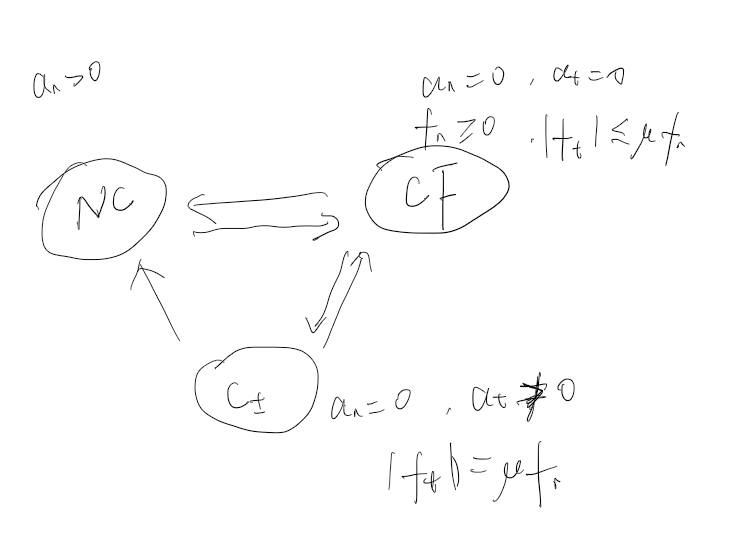 aₙ>0
aₙ=0 , aₜ=0
fₙ≥0 , |fₜ|≤μfₙ
NC
CF
C±
aₙ=0 , aₜ≠0
|fₜ|=μfₙ